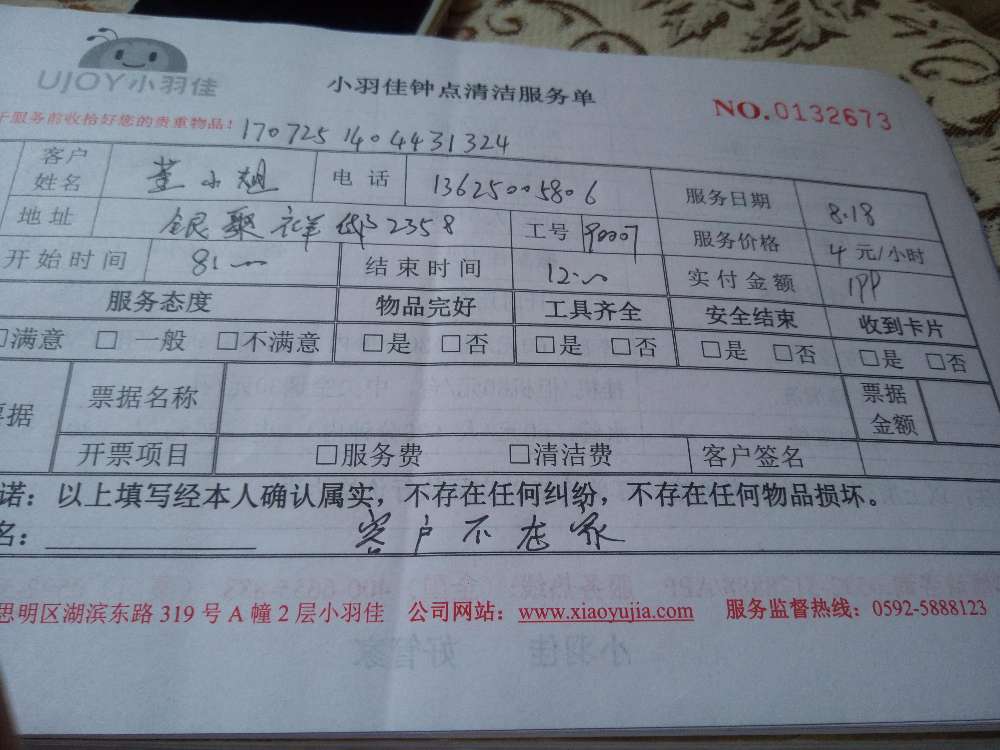 UJOY小羽佳
小羽佳钟点清洁服务单
NO.0132673
服务前收拾好您的贵重物品!
1707251404431324
客户姓名 董小 电话 13625005806 服务日期 8.18
地址 银聚祥邸2358 工号 90007 服务价格 4 元/小时
开始时间 8: 结束时间 12: 实付金额
服务态度 物品完好 工具齐全 安全结束 收到卡片
□满意 □一般 □不满意 □是 □否 □是 □否 □是 □否 □是 □否
票据名称 票据金额
据 开票项目 □服务费 □清洁费 客户签名
诺：以上填写经本人确认属实，不存在任何纠纷，不存在任何物品损坏。
名： 客户不在家
思明区湖滨东路 319 号 A 幢 2 层小羽佳 公司网站：www.xiaoyujia.com 服务监督热线：0592-5888123